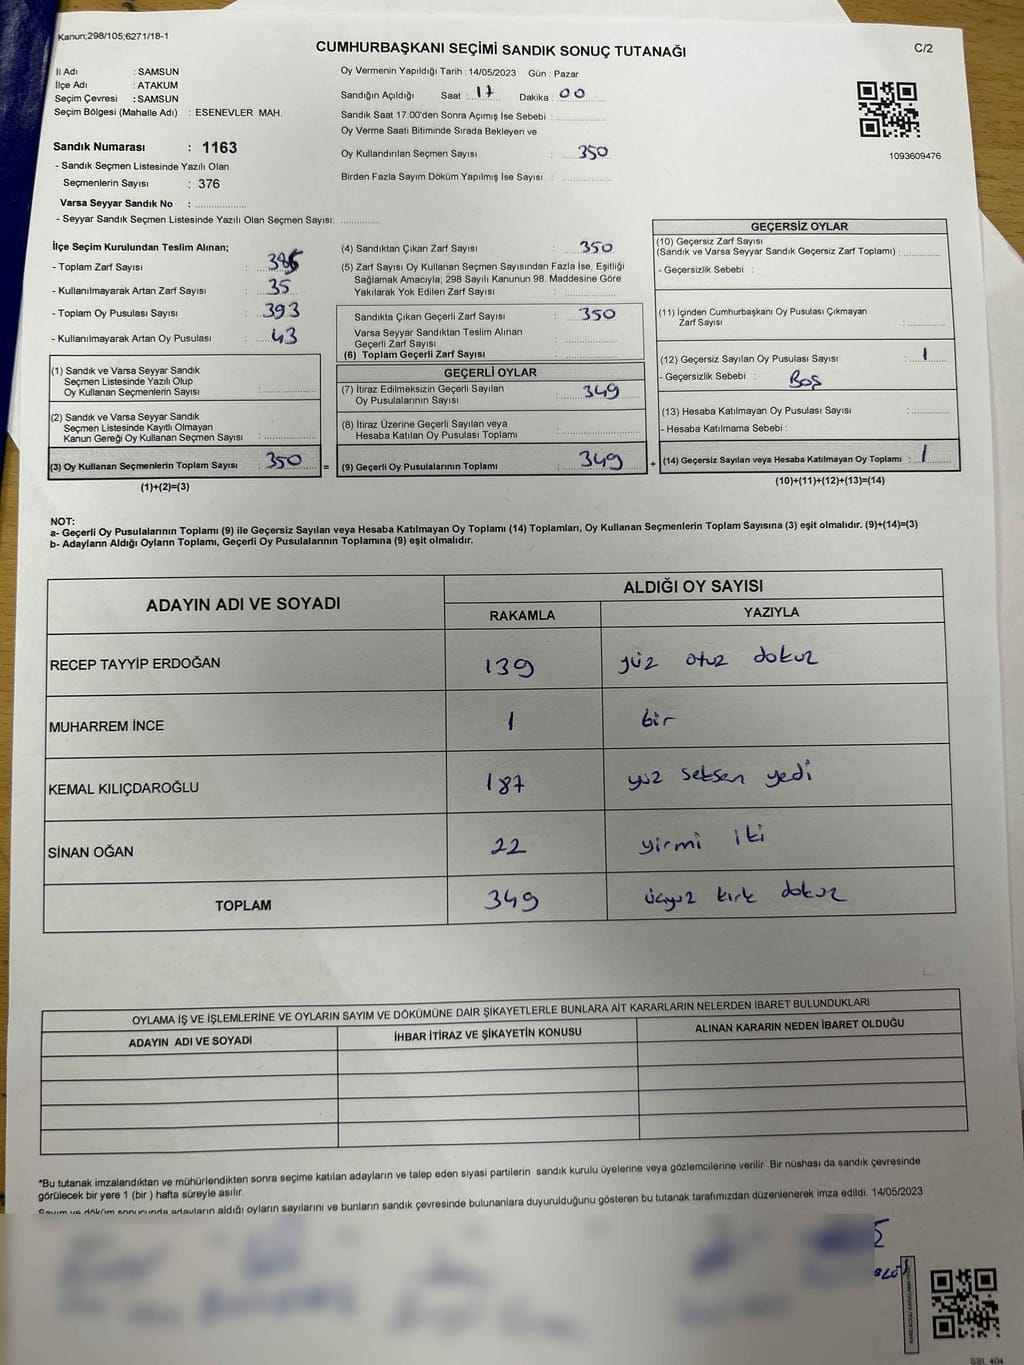 Kanun;298/105;6271/18-1
CUMHURBAŞKANI SEÇİMİ SANDIK SONUÇ TUTANAĞI
C/2
İl Adı : SAMSUN
İlçe Adı : ATAKUM
Seçim Çevresi : SAMSUN
Seçim Bölgesi (Mahalle Adı) : ESENEVLER MAH.
Oy Vermenin Yapıldığı Tarih : 14/05/2023 Gün : Pazar
Sandığın Açıldığı Saat : 17 Dakika : 00
Sandık Saat 17.00'den Sonra Açımış İse Sebebi :
Oy Verme Saati Bitiminde Sırada Bekleyen ve
Oy Kullandırılan Seçmen Sayısı : 350
Birden Fazla Sayım Döküm Yapılmış İse Sayısı :
1093609476
Sandık Numarası : 1163
- Sandık Seçmen Listesinde Yazılı Olan
Seçmenlerin Sayısı : 376
Varsa Seyyar Sandık No :
- Seyyar Sandık Seçmen Listesinde Yazılı Olan Seçmen Sayısı:
İlçe Seçim Kurulundan Teslim Alınan;
- Toplam Zarf Sayısı :
- Kullanılmayarak Artan Zarf Sayısı : 35
- Toplam Oy Pusulası Sayısı : 393
- Kullanılmayarak Artan Oy Pusulası : 43
(1) Sandık ve Varsa Seyyar Sandık
Seçmen Listesinde Yazılı Olup
Oy Kullanan Seçmenlerin Sayısı :
(2) Sandık ve Varsa Seyyar Sandık
Seçmen Listesinde Kayıtlı Olmayan
Kanun Gereği Oy Kullanan Seçmen Sayısı :
(3) Oy Kullanan Seçmenlerin Toplam Sayısı : 350 =
(1)+(2)=(3)
(4) Sandıktan Çıkan Zarf Sayısı : 350
(5) Zarf Sayısı Oy Kullanan Seçmen Sayısından Fazla İse, Eşitliği
Sağlamak Amacıyla; 298 Sayılı Kanunun 98. Maddesine Göre
Yakılarak Yok Edilen Zarf Sayısı :
Sandıkta Çıkan Geçerli Zarf Sayısı : 350
Varsa Seyyar Sandıktan Teslim Alınan
Geçerli Zarf Sayısı :
(6) Toplam Geçerli Zarf Sayısı :
GEÇERLİ OYLAR
(7) İtiraz Edilmeksizin Geçerli Sayılan
Oy Pusulalarının Sayısı : 349
(8) İtiraz Üzerine Geçerli Sayılan veya
Hesaba Katılan Oy Pusulası Toplamı :
(9) Geçerli Oy Pusulalarının Toplamı : 349 +
GEÇERSİZ OYLAR
(10) Geçersiz Zarf Sayısı
(Sandık ve Varsa Seyyar Sandık Geçersiz Zarf Toplamı) :
- Geçersizlik Sebebi :
(11) İçinden Cumhurbaşkanı Oy Pusulası Çıkmayan
Zarf Sayısı :
(12) Geçersiz Sayılan Oy Pusulası Sayısı : 1
- Geçersizlik Sebebi : Boş
(13) Hesaba Katılmayan Oy Pusulası Sayısı :
- Hesaba Katılmama Sebebi :
(14) Geçersiz Sayılan veya Hesaba Katılmayan Oy Toplamı : 1
(10)+(11)+(12)+(13)=(14)
NOT:
a- Geçerli Oy Pusulalarının Toplamı (9) ile Geçersiz Sayılan veya Hesaba Katılmayan Oy Toplamı (14) Toplamları, Oy Kullanan Seçmenlerin Toplam Sayısına (3) eşit olmalıdır. (9)+(14)=(3)
b- Adayların Aldığı Oyların Toplamı, Geçerli Oy Pusulalarının Toplamına (9) eşit olmalıdır.
ADAYIN ADI VE SOYADI
ALDIĞI OY SAYISI
RAKAMLA YAZIYLA
RECEP TAYYİP ERDOĞAN 139 yüz otuz dokuz
MUHARREM İNCE 1 bir
KEMAL KILIÇDAROĞLU 187 yüz seksen yedi
SİNAN OĞAN 22 yirmi iki
TOPLAM 349 üçyüz kırk dokuz
OYLAMA İŞ VE İŞLEMLERİNE VE OYLARIN SAYIM VE DÖKÜMÜNE DAİR ŞİKAYETLERLE BUNLARA AİT KARARLARIN NELERDEN İBARET BULUNDUKLARI
ADAYIN ADI VE SOYADI İHBAR İTİRAZ VE ŞİKAYETİN KONUSU ALINAN KARARIN NEDEN İBARET OLDUĞU
*Bu tutanak imzalandıktan ve mühürlendikten sonra seçime katılan adayların ve talep eden siyasi partilerin sandık kurulu üyelerine veya gözlemcilerine verilir. Bir nüshası da sandık çevresinde
görülecek bir yere 1 (bir ) hafta süreyle asılır.
Sayım ve döküm sonucunda adayların aldığı oyların sayılarını ve bunların sandık çevresinde bulunanlara duyurulduğunu gösteren bu tutanak tarafımızdan düzenlenerek imza edildi. 14/05/2023